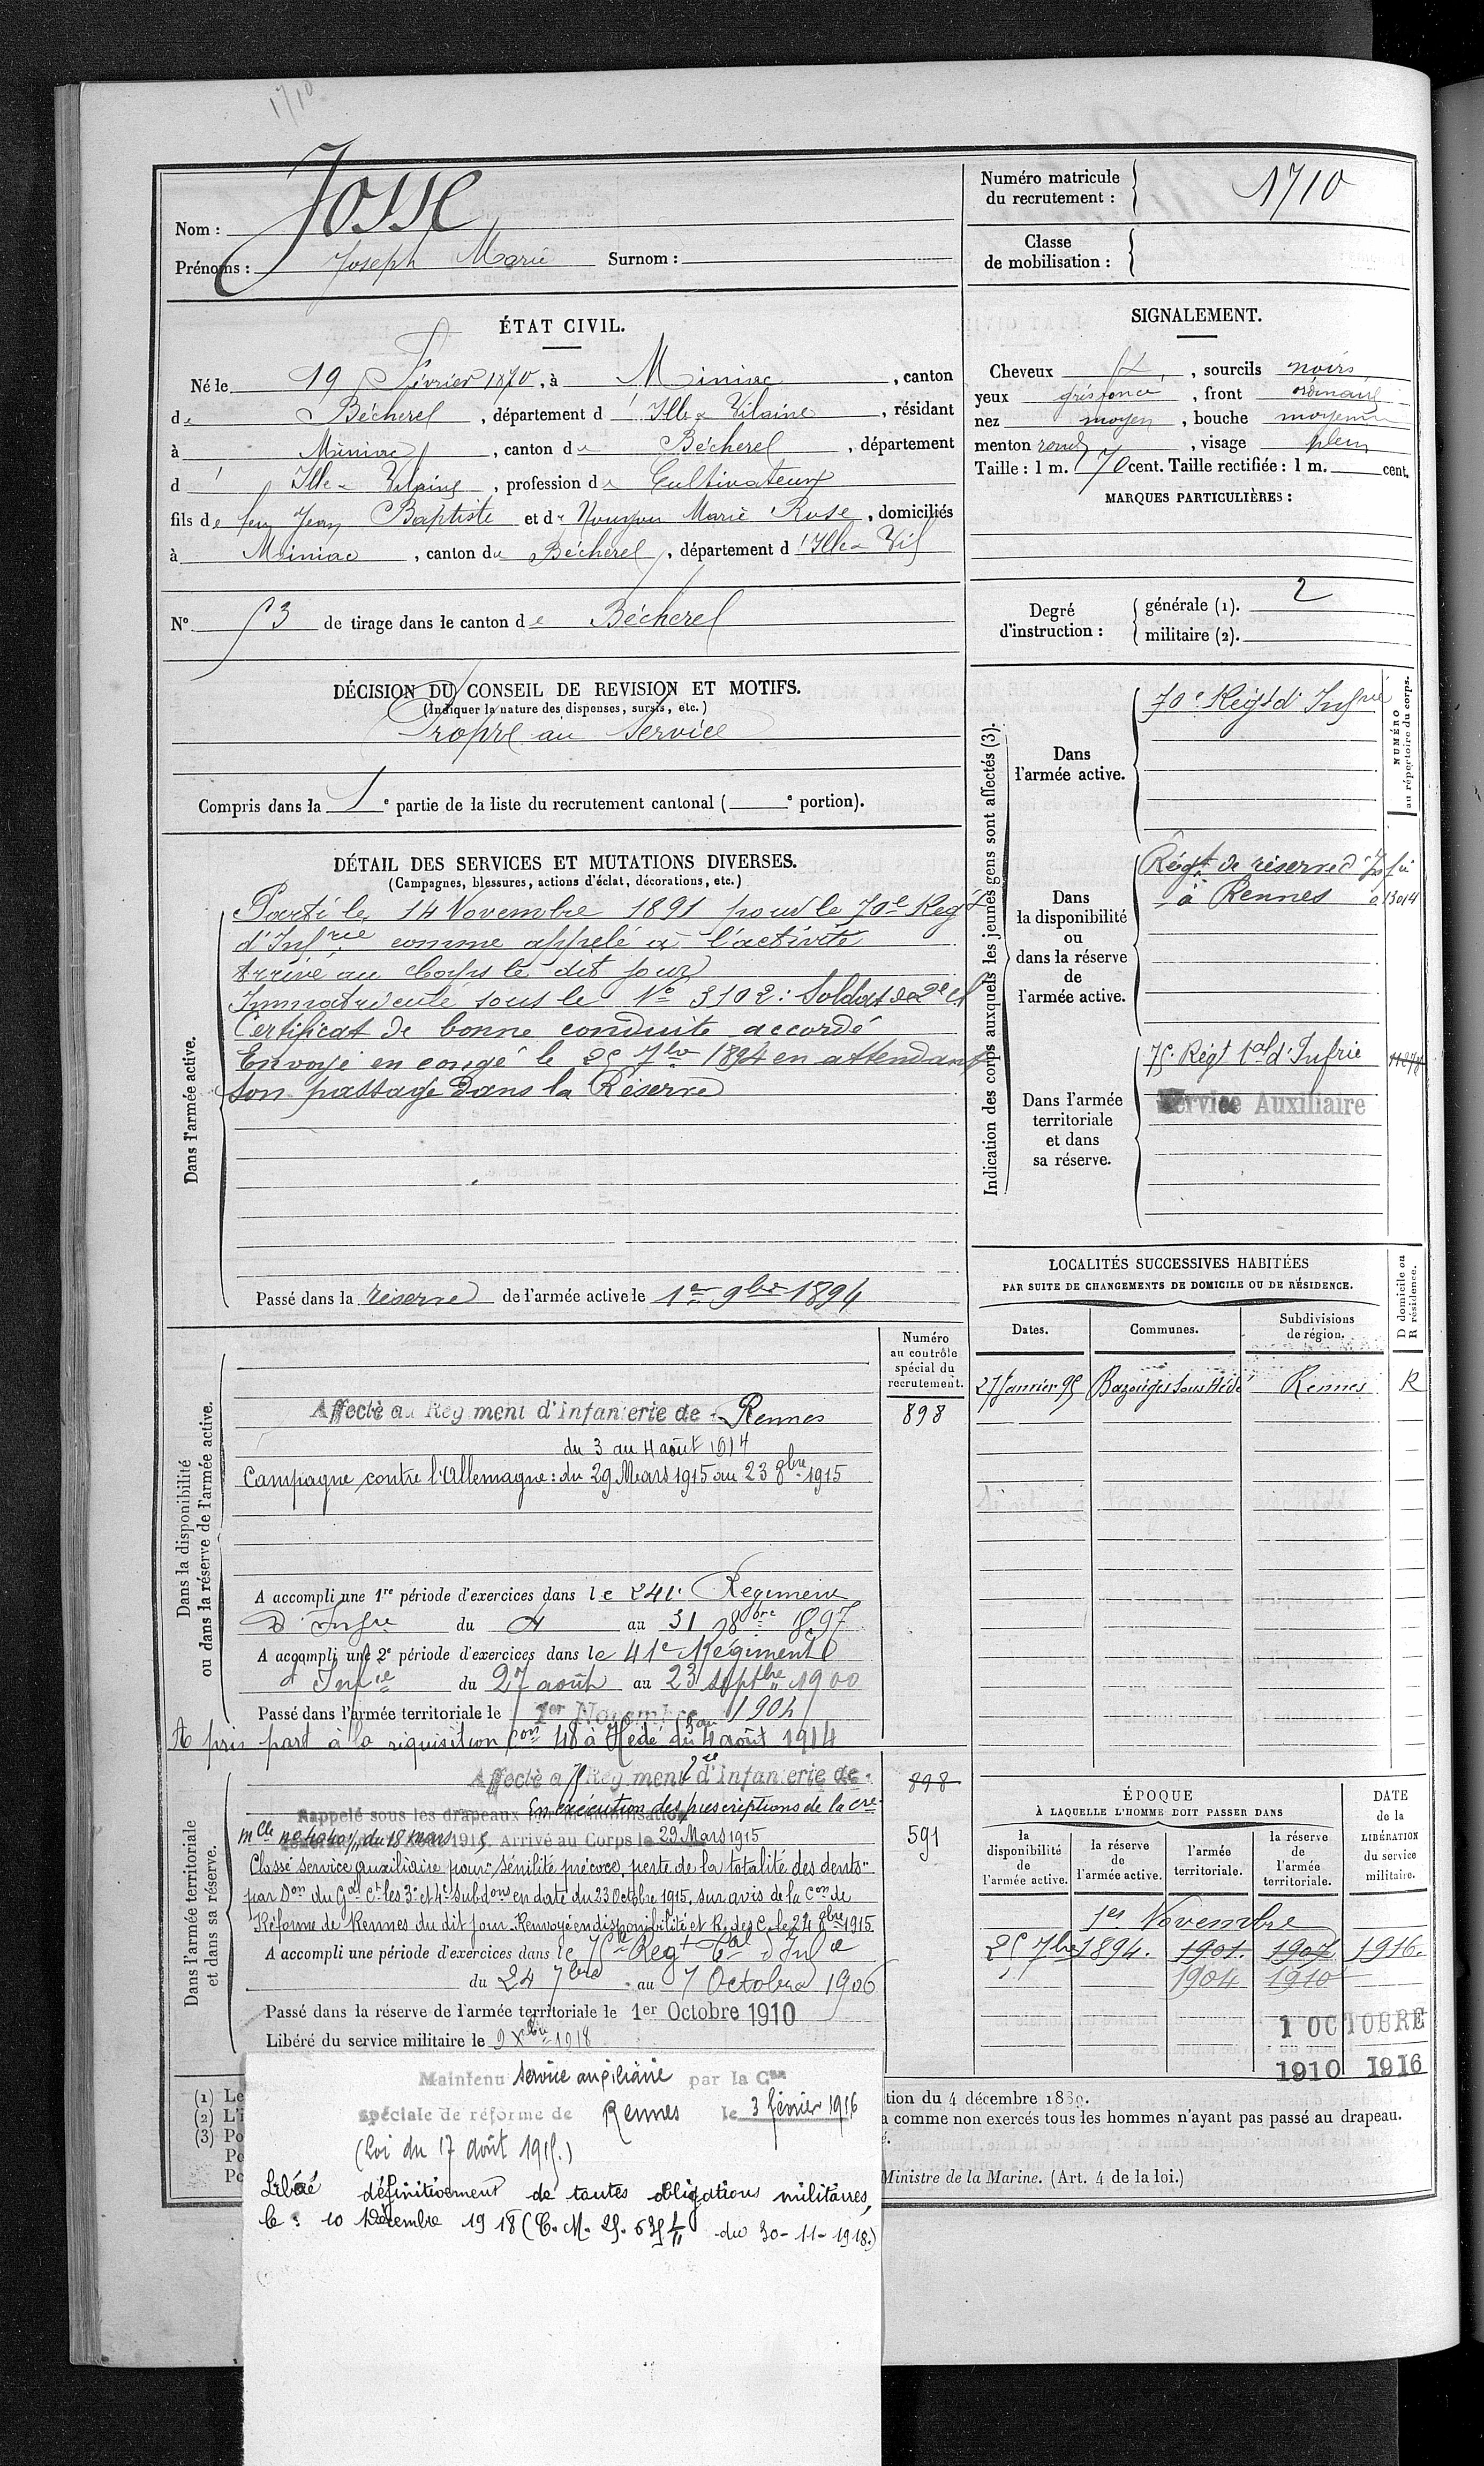 1710
Nom : Josse
Prénoms : Joseph Marie Surnom :
Numéro matricule du recrutement : 1710
Classe de mobilisation :
ÉTAT CIVIL.
Né le 19 Février 1870, à Miniac, canton
de Bécherel, département d'Ille & Vilaine, résidant
à Miniac, canton de Bécherel, département
d'Ille & Vilaine, profession de Cultivateur
fils de feu Jean Baptiste et de Marie Rose, domiciliés
à Miniac, canton de Bécherel, département d'Ille & Vil
N° 53 de tirage dans le canton de Bécherel
SIGNALEMENT.
Cheveux , sourcils noirs
yeux gris foncé, front ordinaire
nez moyen, bouche moyenne
menton rond, visage plein
Taille : 1 m. 70 cent. Taille rectifiée : 1 m. cent.
MARQUES PARTICULIÈRES :
Degré d'instruction : générale (1). 2
militaire (2).
DÉCISION DU CONSEIL DE REVISION ET MOTIFS.
(Indiquer la nature des dispenses, sursis, etc.)
Propre au Service
Compris dans la 1e partie de la liste du recrutement cantonal ( e portion).
DÉTAIL DES SERVICES ET MUTATIONS DIVERSES.
(Campagnes, blessures, actions d'éclat, décorations, etc.)
Dans l'armée active.
Parti le 14 Novembre 1891 pour le 70e Régt
d'Infrie comme appelé à l'activité
Arrivé au Corps le dit jour
Immatriculé sous le No 3102 : Soldat de 2e cl
Certificat de bonne conduite accordé
Envoyé en congé le 25 7bre 1894 en attendant
son passage dans la Réserve
Passé dans la réserve de l'armée active le 1er 9bre 1894
Indication des corps auxquels les jeunes gens sont affectés (3).
NUMÉRO au répertoire du corps.
Dans l'armée active.
70e Régt d'Infrie
Dans la disponibilité ou dans la réserve de l'armée active.
Régt de réserve d'Infie
à Rennes 013014
Dans l'armée territoriale et dans sa réserve.
75e Régt tal d'Infrie
Service Auxiliaire
LOCALITÉS SUCCESSIVES HABITÉES
PAR SUITE DE CHANGEMENTS DE DOMICILE OU DE RÉSIDENCE.
Dates. Communes. Subdivisions de région. D domicile ou R résidence.
27 Janvier 95 Bazouges sous Hédé Rennes R
Dans la disponibilité ou dans la réserve de l'armée active.
Numéro au contrôle spécial du recrutement.
Affecté au Régiment d'Infanterie de Rennes 898
du 3 au 4 août 1914
Campagne contre l'Allemagne : du 29 Mars 1915 au 23 8bre 1915
A accompli une 1re période d'exercices dans le 241e Régiment
d'Infie du 4 au 31 8bre 1897
A accompli une 2e période d'exercices dans le 41e Régiment
d'Infie du 27 août au 23 septbre 1900
Passé dans l'armée territoriale le 1er Novembre 1904
A pris part à la réquisition Con 48 à Hédé du 3 au 4 août 1914
Dans l'armée territoriale et dans sa réserve.
Affecté au 75 Régiment d'Infanterie de 898
Rappelé sous les drapeaux En exécution des prescriptions de la cre
mlle du 18 mars 1915. Arrivé au Corps le 29 Mars 1915 591
Classé service auxiliaire pour "sénilité précoce, perte de la totalité des dents"
par Don du Gal Ct les 3e et 4e Subdons en date du 23 Octobre 1915, sur avis de la Con de
Réforme de Rennes du dit jour. Renvoyé en disponibilité et R. des C. le 24 8bre 1915
A accompli une période d'exercices dans le 75e Régt tal d'Infie
du 24 7bre au 7 Octobre 1906
Passé dans la réserve de l'armée territoriale le 1er Octobre 1910
Libéré du service militaire le 9 Xbre 1918
ÉPOQUE
À LAQUELLE L'HOMME DOIT PASSER DANS
la disponibilité de l'armée active. la réserve de l'armée active. l'armée territoriale. la réserve de l'armée territoriale.
DATE de la LIBÉRATION du service militaire.
1er Novembre
25 7bre 1894. 1901. 1907 1916.
1904 1910
1 OCTOBRE
1910 1916
(1) Le
(2) L'i
(3) Po
Po
Po
tion du 4 décembre 1889.
a comme non exercés tous les hommes n'ayant pas passé au drapeau.
é.
Ministre de la Marine. (Art. 4 de la loi.)
Maintenu service auxiliaire par la Con
spéciale de réforme de Rennes le 3 février 1916
(Loi du 17 août 1915.)
Libéré définitivement de toutes obligations militaires,
le : 10 Décembre 1918 (C. M. du 30-11-1918.)